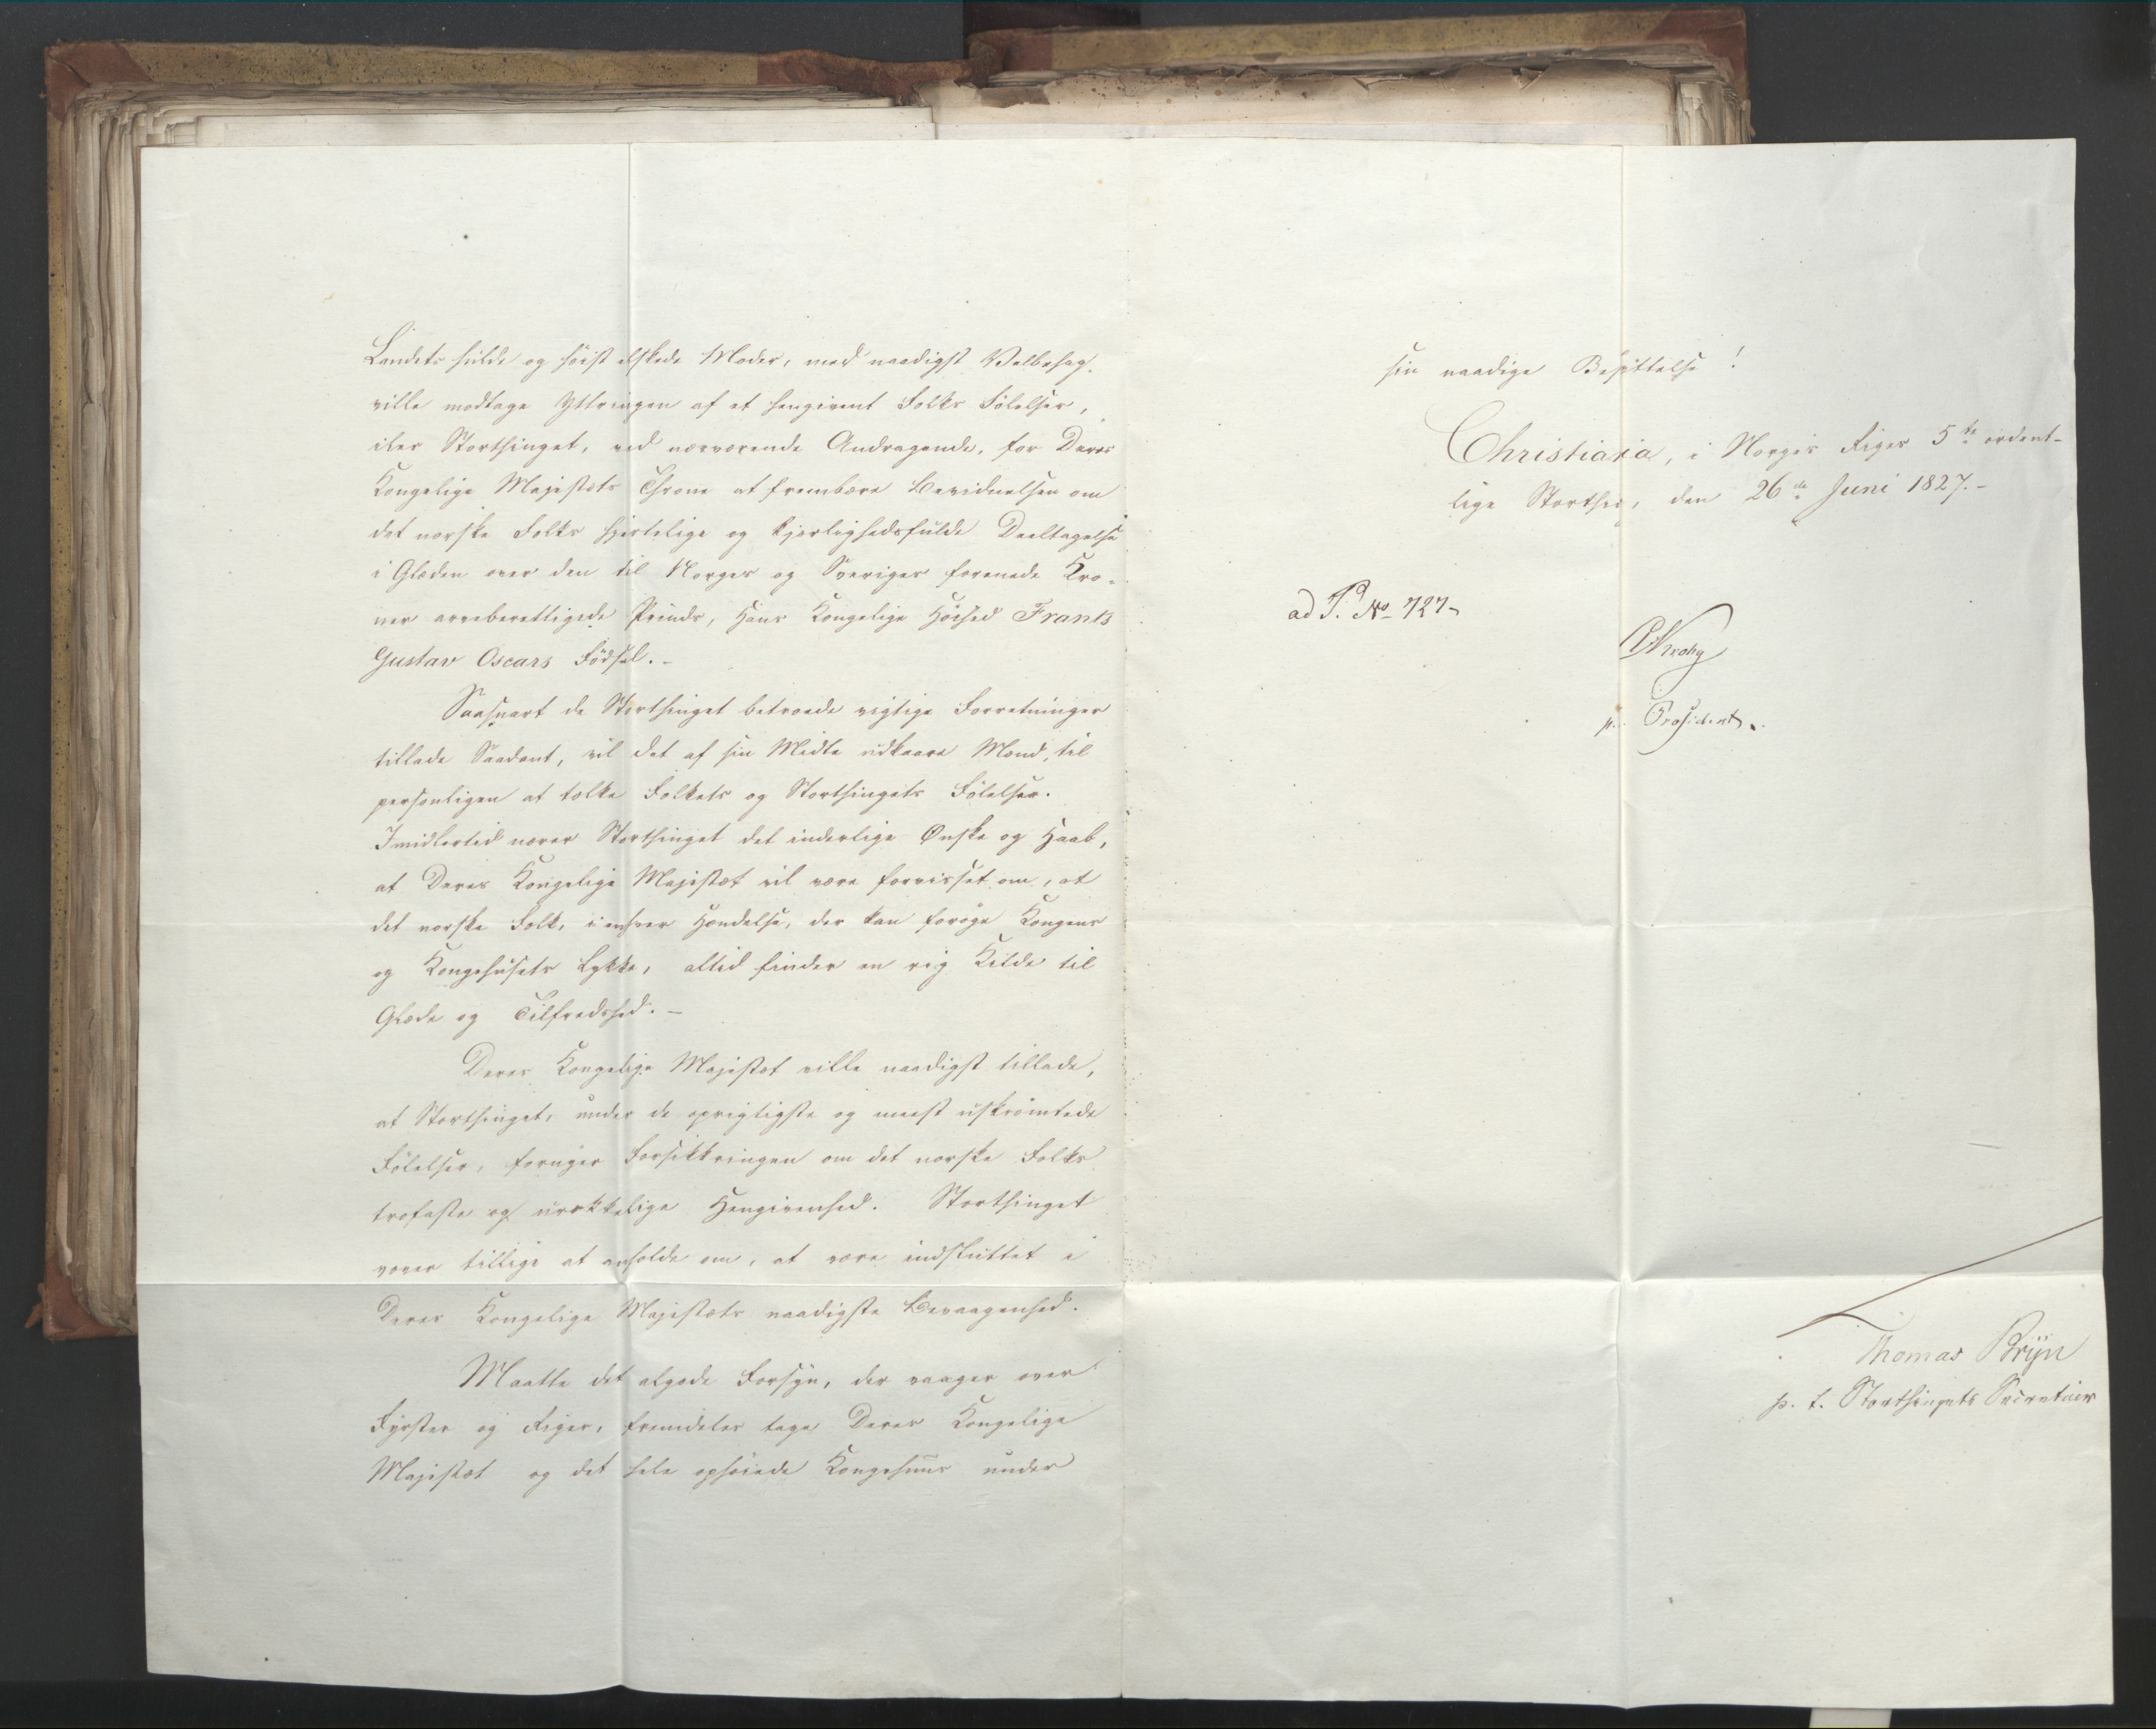 Landets hulde og høist elskede Moder, med naadigst Velbehag
ville modtage Yttringen af et hengivent Folks Følelser,
iler Storthinget, ved nærværende Andragende, for Deres
Kongelige Majestæts Throne at frembære Bevidnelsen om
det norske Folks hjertelige og kjærlighedsfulde Deeltagelse
i Glæden over den til Norges og Sveriges forenede Kro-
ner arveberettigede Prinds, Hans Kongelige Höihed Frants
Gustav Oscars Födsel. -
Saasnart de Storthinget betroede vigtige Forretninger
tillade Saadant, vil det af sin Midte udkaare Mænd, til
personligen at tolke Folkets og Storthingets Fölelser.
Imidlertid nærer Storthinget det inderlige Ønske og Haab,
at Deres Kongelige Majestæt vil være forvisset om, at
det norske Folk, i enhver Hændelse, der kan foröge Kongens
og Kongehusets Lykke, altid finder en rig Kilde til
Glæde og Tilfredshed. -
Deres Kongelige Majestæt ville naadigst tillade,
at Storthinget, under de oprigtigste og meest uskrömtede
Fölelser, fornyer Forsikkringen om det norske Folks
trofaste og urokkelige Hengivenhed. Storthinget
vover tillige at anholde om, at være indsluttet i
Deres Kongelige Majestæts naadigste Bevaagenhed.
Maatte det algode Forsyn, der vaager over
Fyrster og Riger, fremdeles tage Deres Kongelige
Majestæt og det hele ophöiede Kongehuus under
sin naadige Beskyttelse!
Christiania, i Norges Riges 5te ordent-
lige Storthing, den 26de Juni 1827. -
ad P. No 727
Krohg
p. t. Præsident.
Thomas Bryn
p. t. Storthingets Secretair